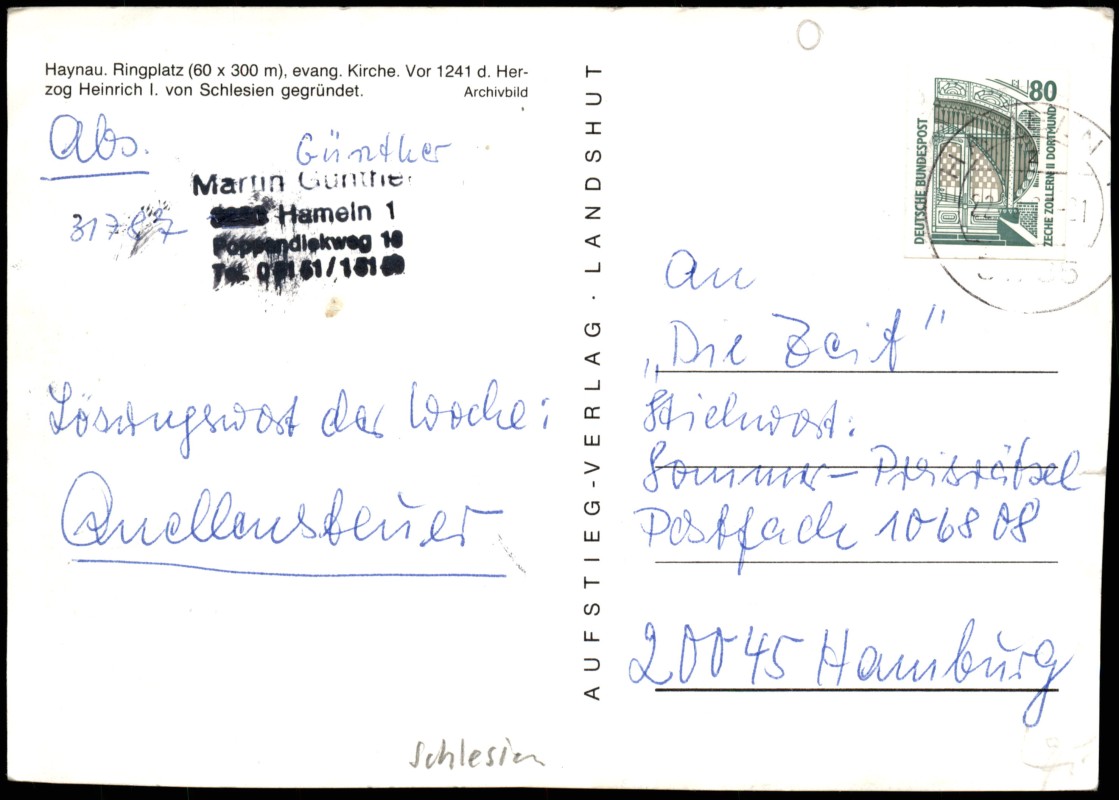 Haynau. Ringplatz (60 x 300 m), evang. Kirche. Vor 1241 d. Her-
zog Heinrich I. von Schlesien gegründet. Archivbild
Abs.
Günther
Martin Günther
31787 Hameln 1
Poppendiekweg 18
Tel.
Lösungswort der Woche:
Quellensteuer
AUFSTIEG-VERLAG · LANDSHUT
80
DEUTSCHE BUNDESPOST
ZECHE ZOLLERN II DORTMUND
An
„Die Zeit"
Stichwort:
Sommer-Preisrätsel
Postfach 106808
20045 Hamburg
Schlesien